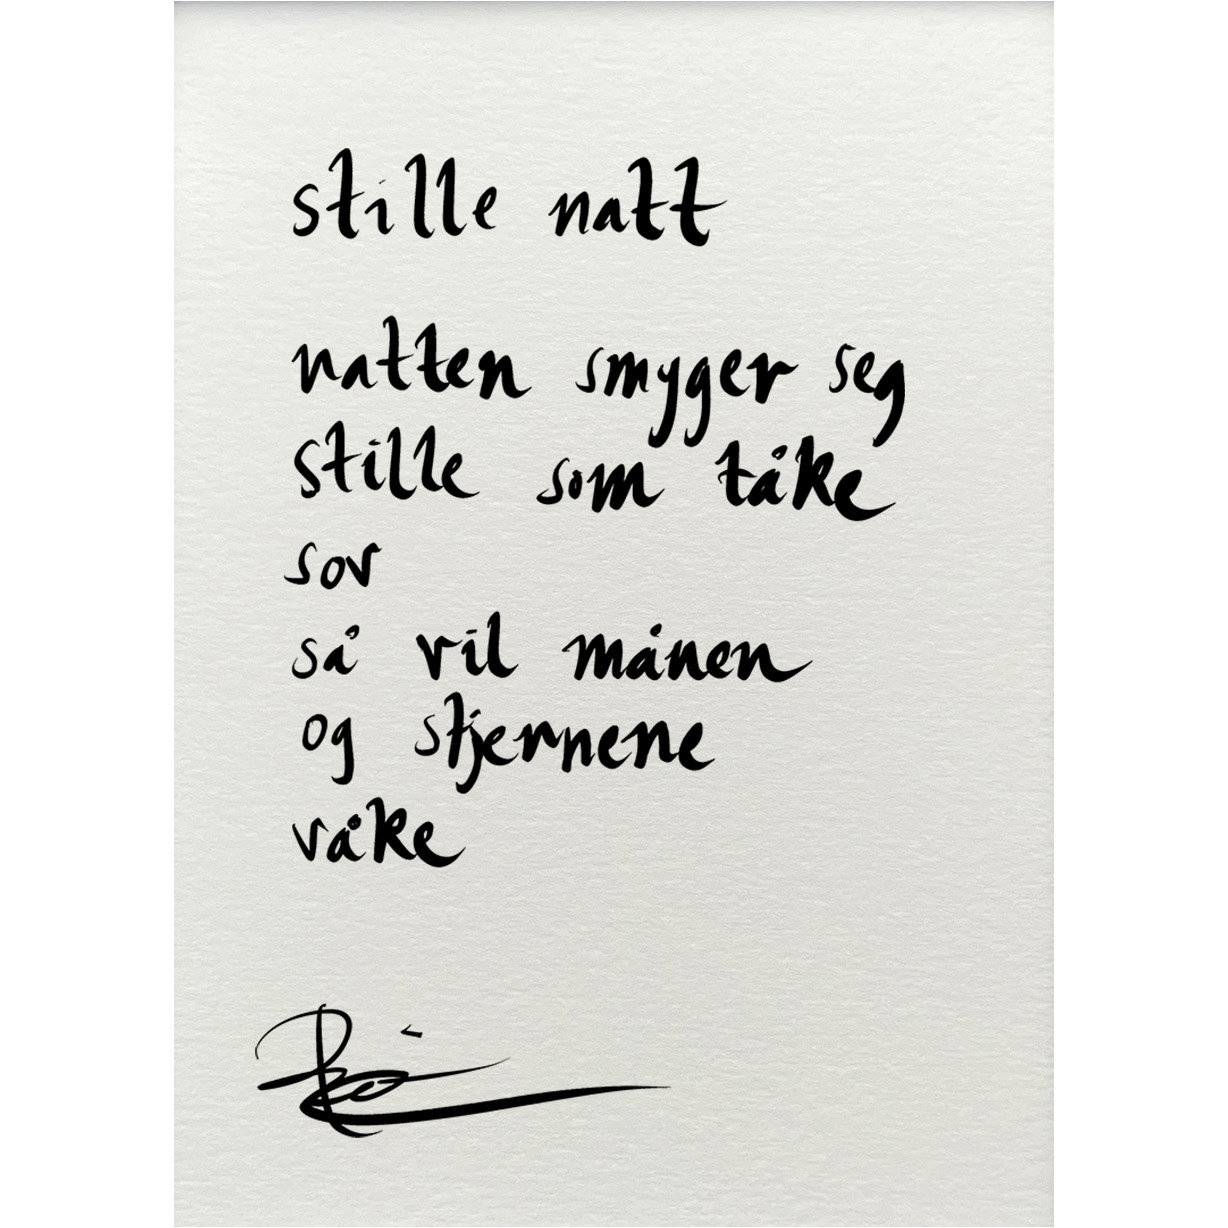 stille natt
natten smyger seg
stille som tåke
sov
så vil månen
og stjernene
våke